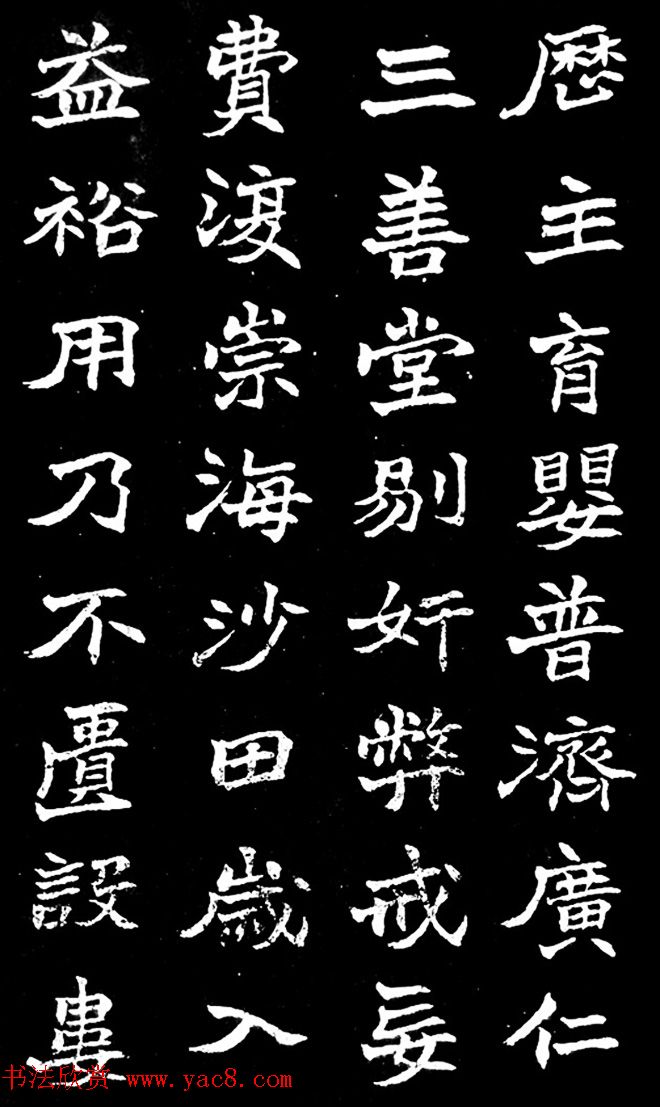 歷主育嬰普濟廣仁
三善堂剔奸弊戒妄
費復崇海沙田歲入
益裕用乃不匱設婁
书法欣赏 www.yac8.com